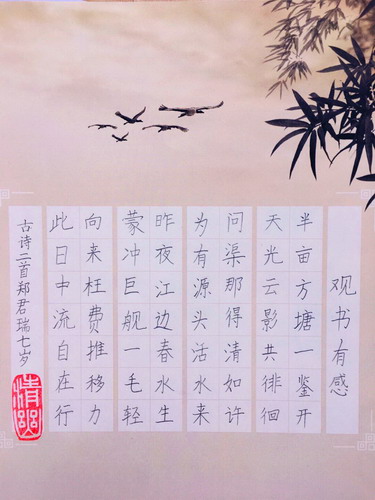 观书有感
半亩方塘一鉴开
天光云影共徘徊
问渠那得清如许
为有源头活水来
昨夜江边春水生
蒙冲巨舰一毛轻
向来枉费推移力
此日中流自在行
古诗二首郑君瑞七岁